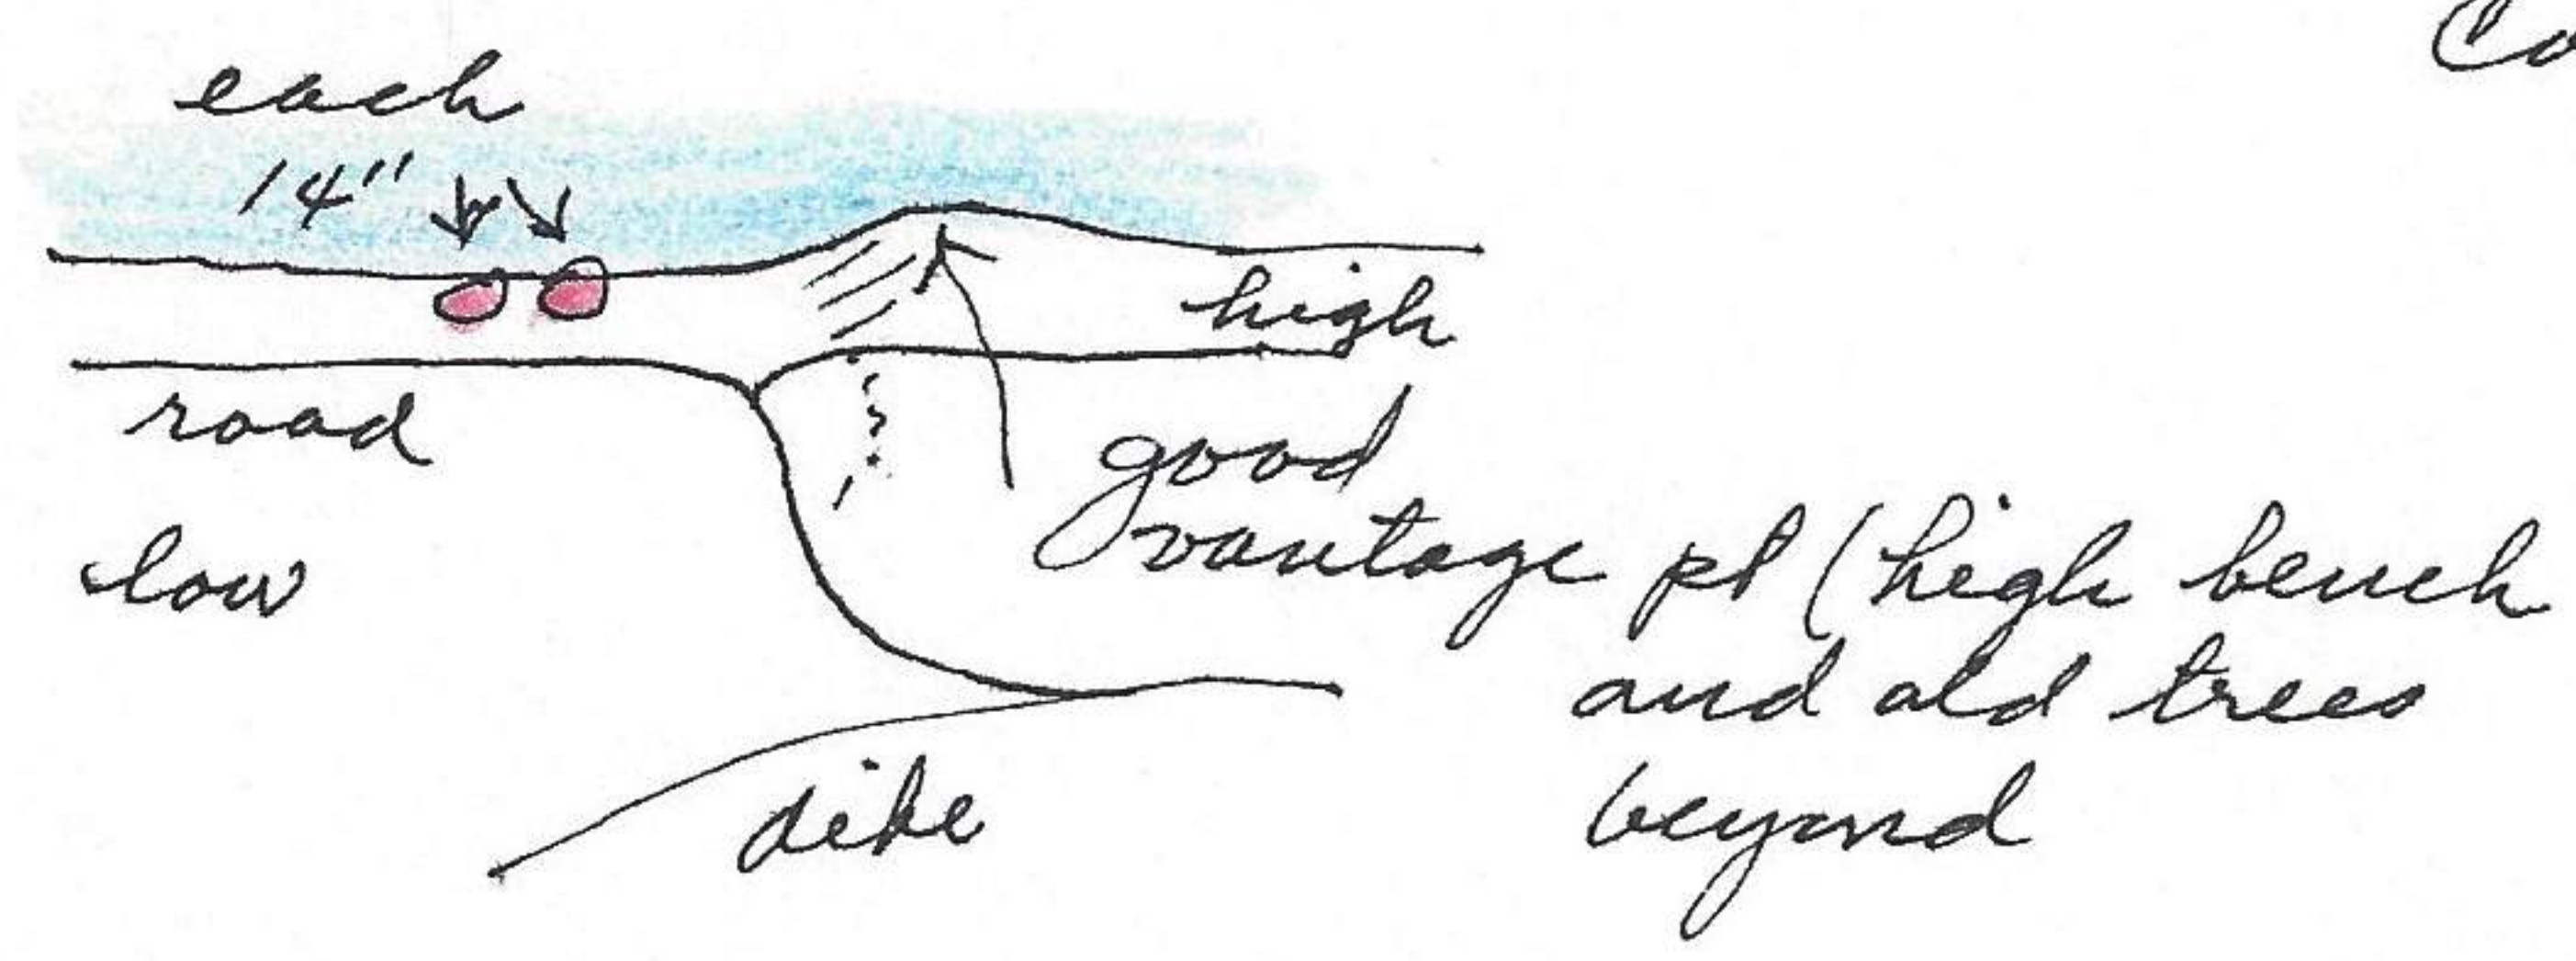 each
14"
high
road
good
vantage pt (high bench
low
and old trees
beyond
dike